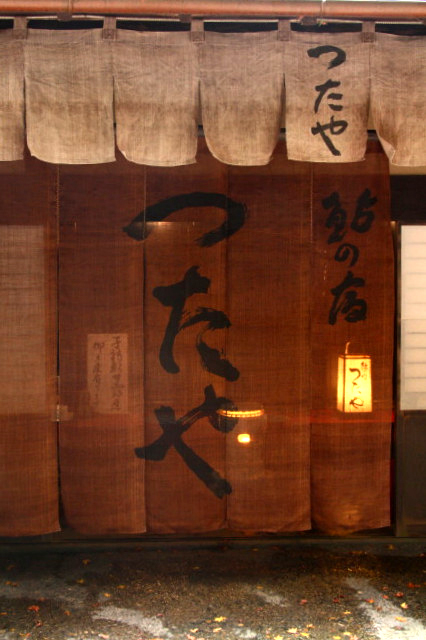 つたや
鮎の宿
つたや
つたや